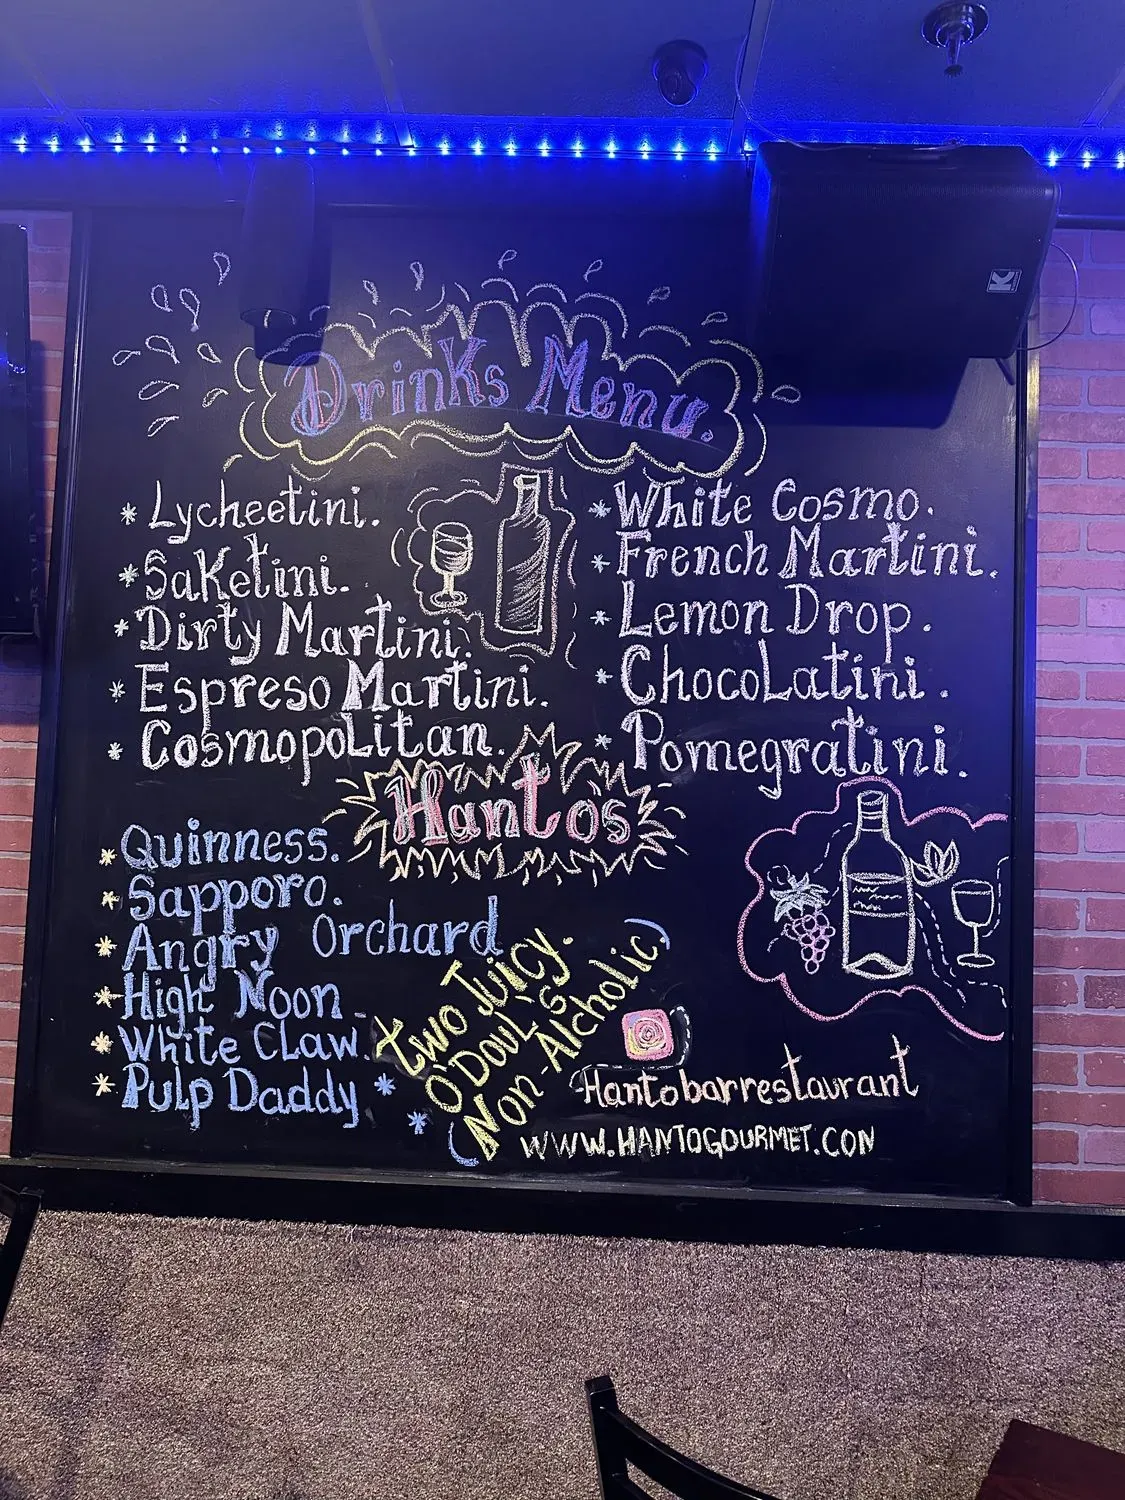 Drinks Menu.
* Lycheetini.
* Saketini.
* Dirty Martini.
* Espreso Martini.
* Cosmopolitan.
* White Cosmo.
* French Martini.
* Lemon Drop.
* Chocolatini.
* Pomegratini.
Hantos
* Quinness.
* Sapporo.
* Angry Orchard
* High Noon
* White Claw.
* Pulp Daddy *
* two Juicy.
O'DOUL'S
(Non-Alcholic)
Hantobarrestaurant
WWW.HANTOGOURMET.CON
K